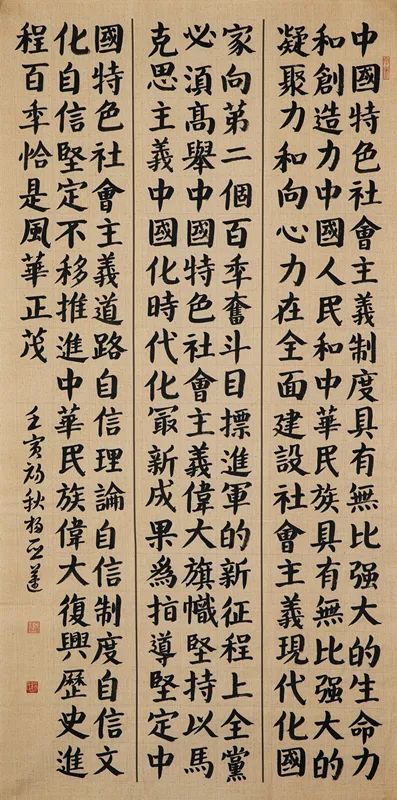 中國特色社會主義制度具有無比强大的生命力
和創造力中國人民和中華民族具有無比强大的
凝聚力和向心力在全面建設社會主義現代化國
家向第二個百秊奮斗目標進軍的新征程上全黨
必須髙舉中國特色社會主義偉大旗幟堅持以馬
克思主義中國化時代化冣新成果為指導堅定中
國特色社會主義道路自信理論自信制度自信文
化自信堅定不移推進中華民族偉大復興歷史進
程百秊恰是風華正茂
壬寅初秋